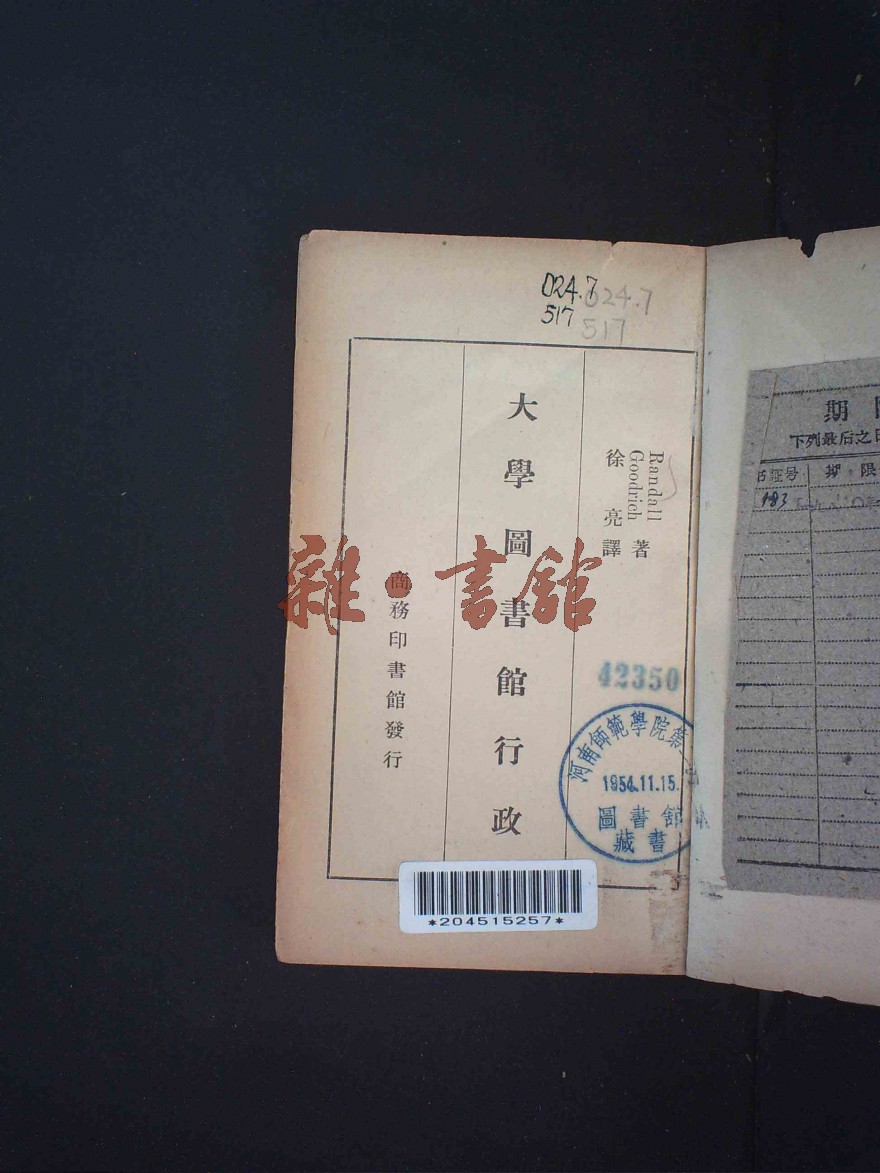 024.7
517
024.7
517
Randall
Goodrich
著
徐亮譯
大學圖書館行政
商務印書館發行
雜·書舘
42350
河南師範學院第
1954.11.15.
圖書館
藏書
*204515257*
期
下列最后之日
证号 期限
183